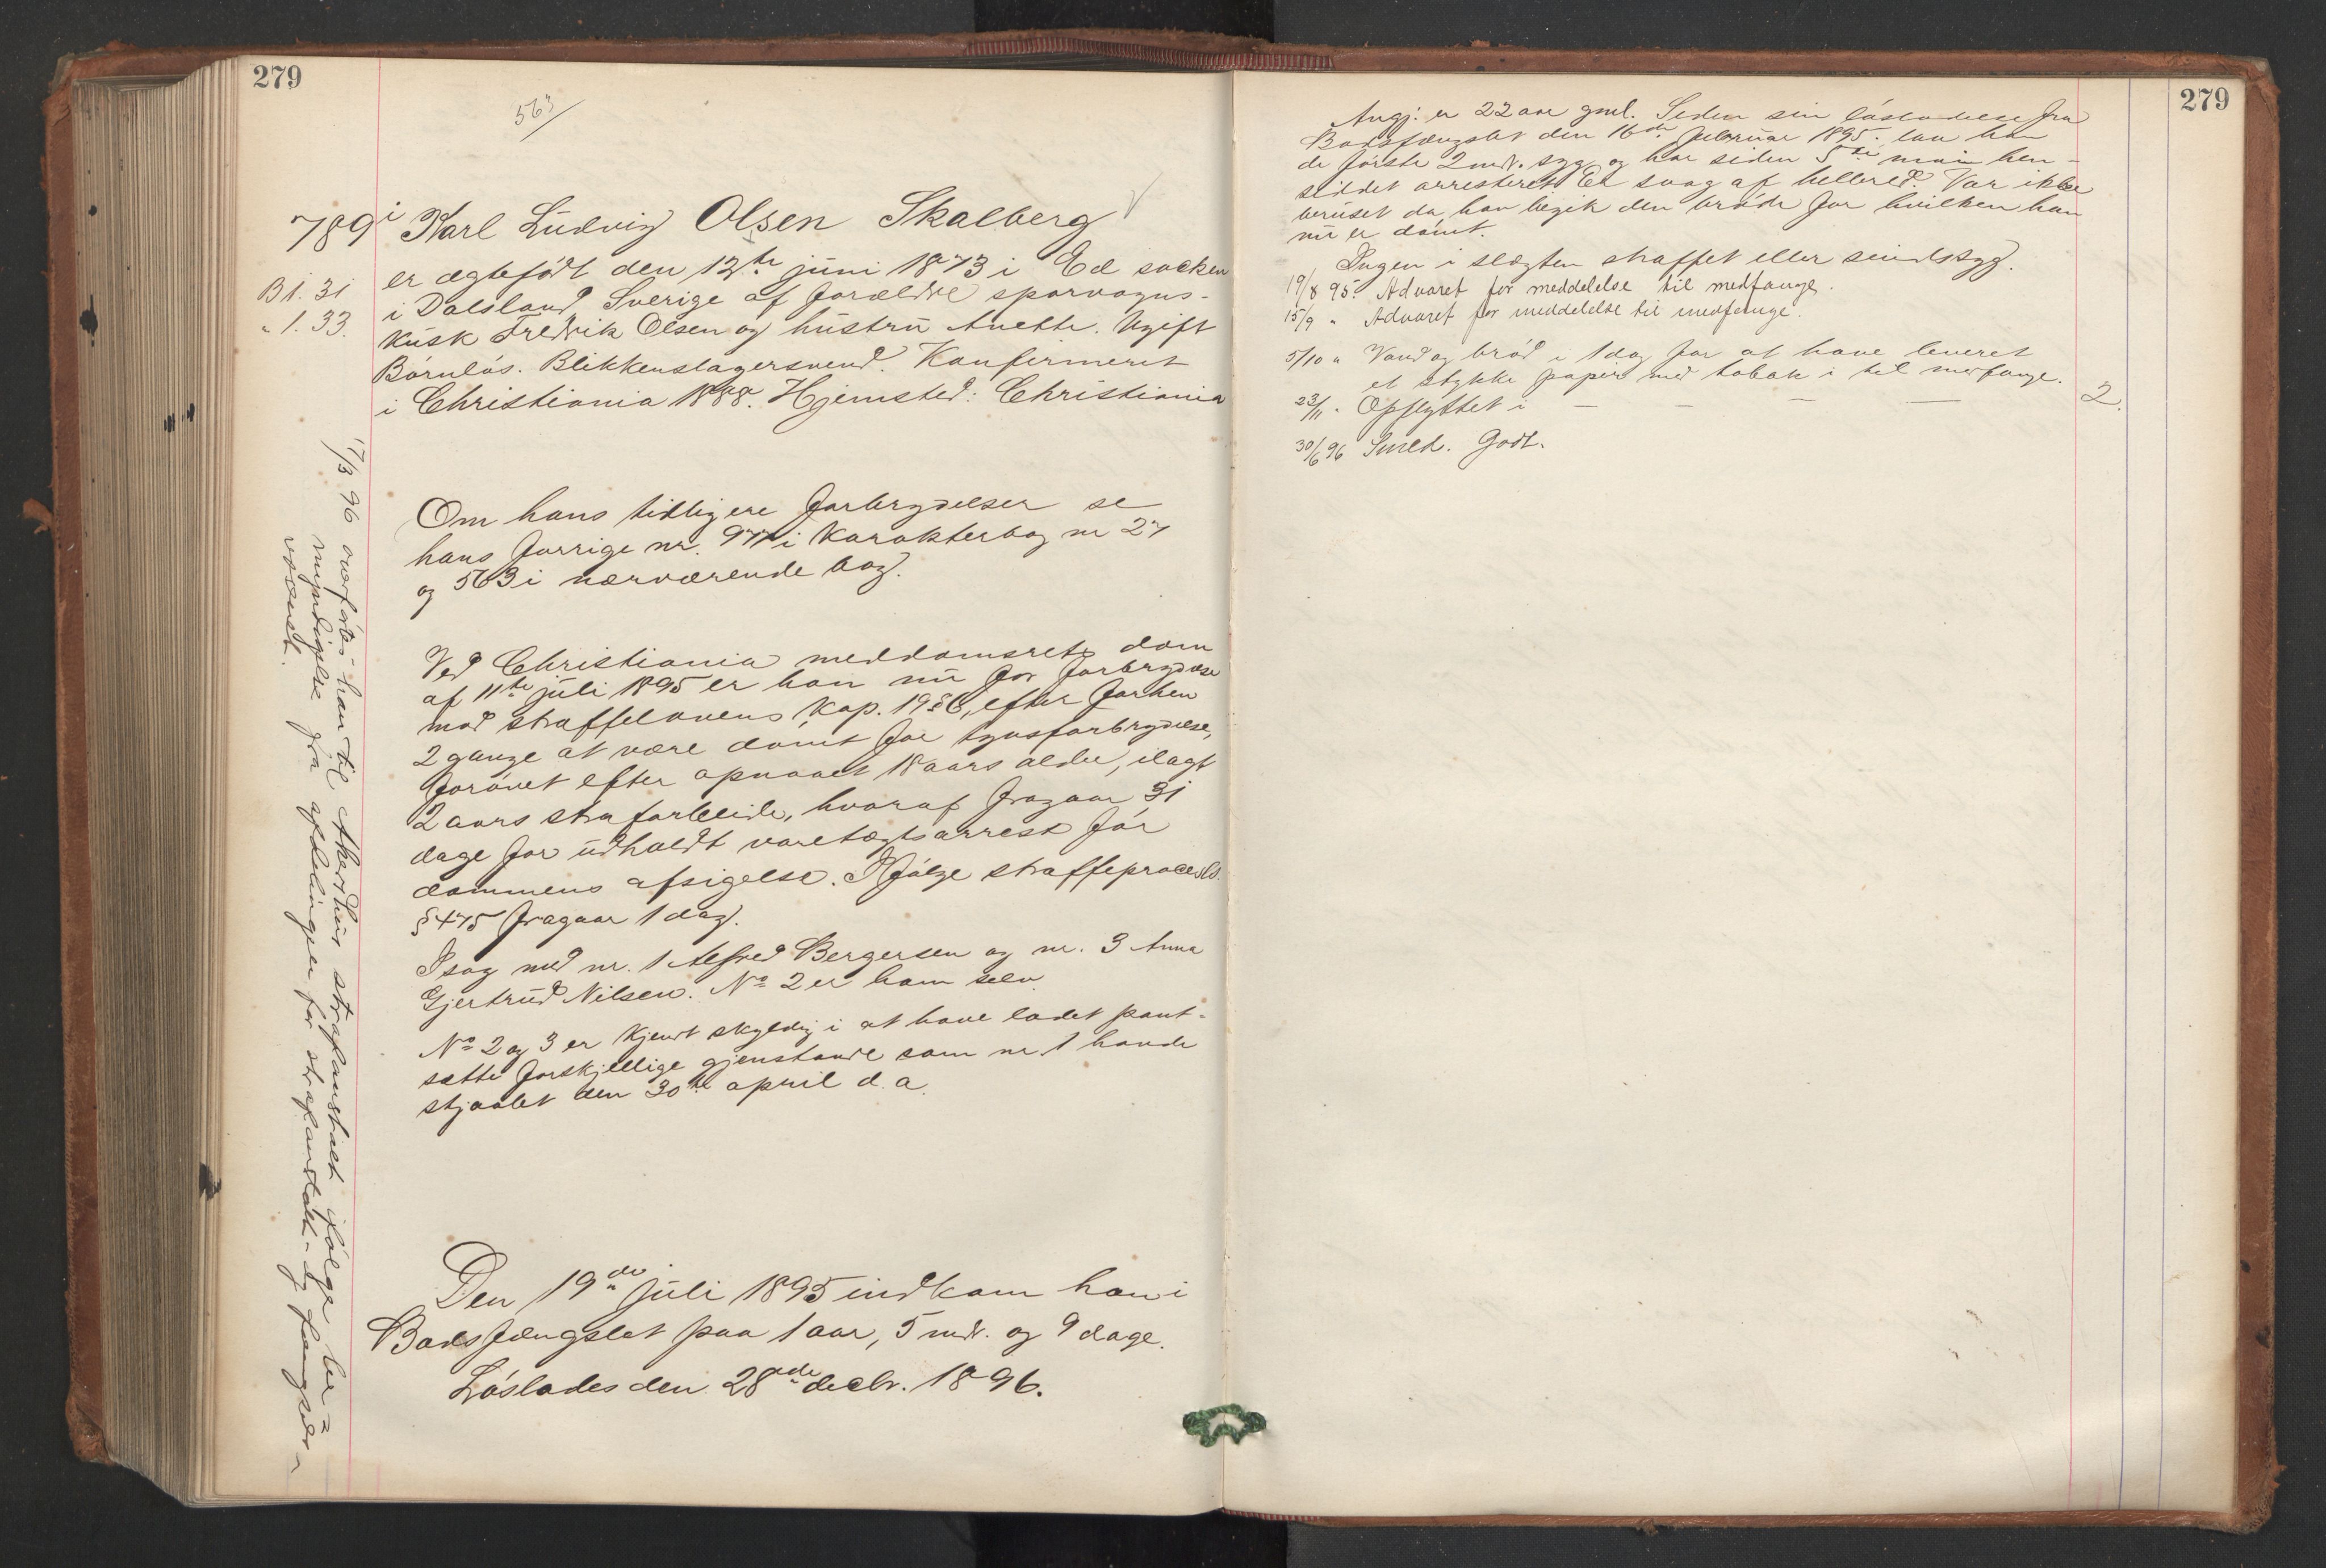 279
563/
789
Karl Ludvig Olsen Skalberg
B 1. 31
" 1. 33.
er ægtefødt den 12te juni 1873 i Ed socken
i Dalsland Sverige af forældre sporvogns-
kusk Fredrik Olsen og hustru Anette. Ugift
Børnløs. Blikkenslagersvend. Konfirmeret
i Christiania 1888. Hjemsted: Christiania
17/3 96 overførtes han til Akershus strafanstalt ifølge be-
myndigelse fra afdelingen for strafanstalt- og fængsels-
væsenet.
Om hans tidligere forbrydelser se
hans forrige nr. 977 i karakterbog nr 27
og 563 i nærværende bog.
Ved Christiania meddomsrets dom
af 11te juli 1895 er han nu for forbrydelse
mod straffelovens kap. 19 § 6, efter forhen
2 gange at være dømt for tyvsforbrydelse,
forøvet efter opnaaet 18 aars alder, ilagt
2 aars strafarbeide, hvoraf fragaar 31
dage for udholdt varetægtsarrest før
dommens afsigelse. Ifølge straffeprocesl.
§ 475 fragaar 1 dag.
I sag med nr. 1 Alfred Bergersen og nr. 3 Anna
Gjertrud Nilsen. No 2 er ham selv.
No 2 og 3 er kjendt skyldig i at have ladet pant-
sætte forskjellige gjenstande som nr. 1 havde
stjaalet den 30te april d. a.
Den 19de juli 1895 indkom han i
Bodsfængslet paa 1 aar, 5 mdr. og 9 dage.
Løslades den 28de decbr. 1896.
279
Angj. er 22 aar gml. Siden sin løsladelse fra
Bodsfængslet den 16de februar 1895 laa han
de første 2 mdr. syg og har siden 5te mai hen-
siddet arresteret. Er svag af helbred. Var ikke
beruset da han begik den brøde for hvilken han
nu er dømt.
Ingen i slægten straffet eller sindssyg.
19/8 95. Advaret for meddelelse til medfange.
15/9 " Advaret for meddelelse til medfange.
5/10 " Vand og brød i 1 dag for at have leveret
et stykke papir med tobak i til medfange.
23/11 " Opflyttet i — — — — 2.
30/6 96 Smed. Godt.